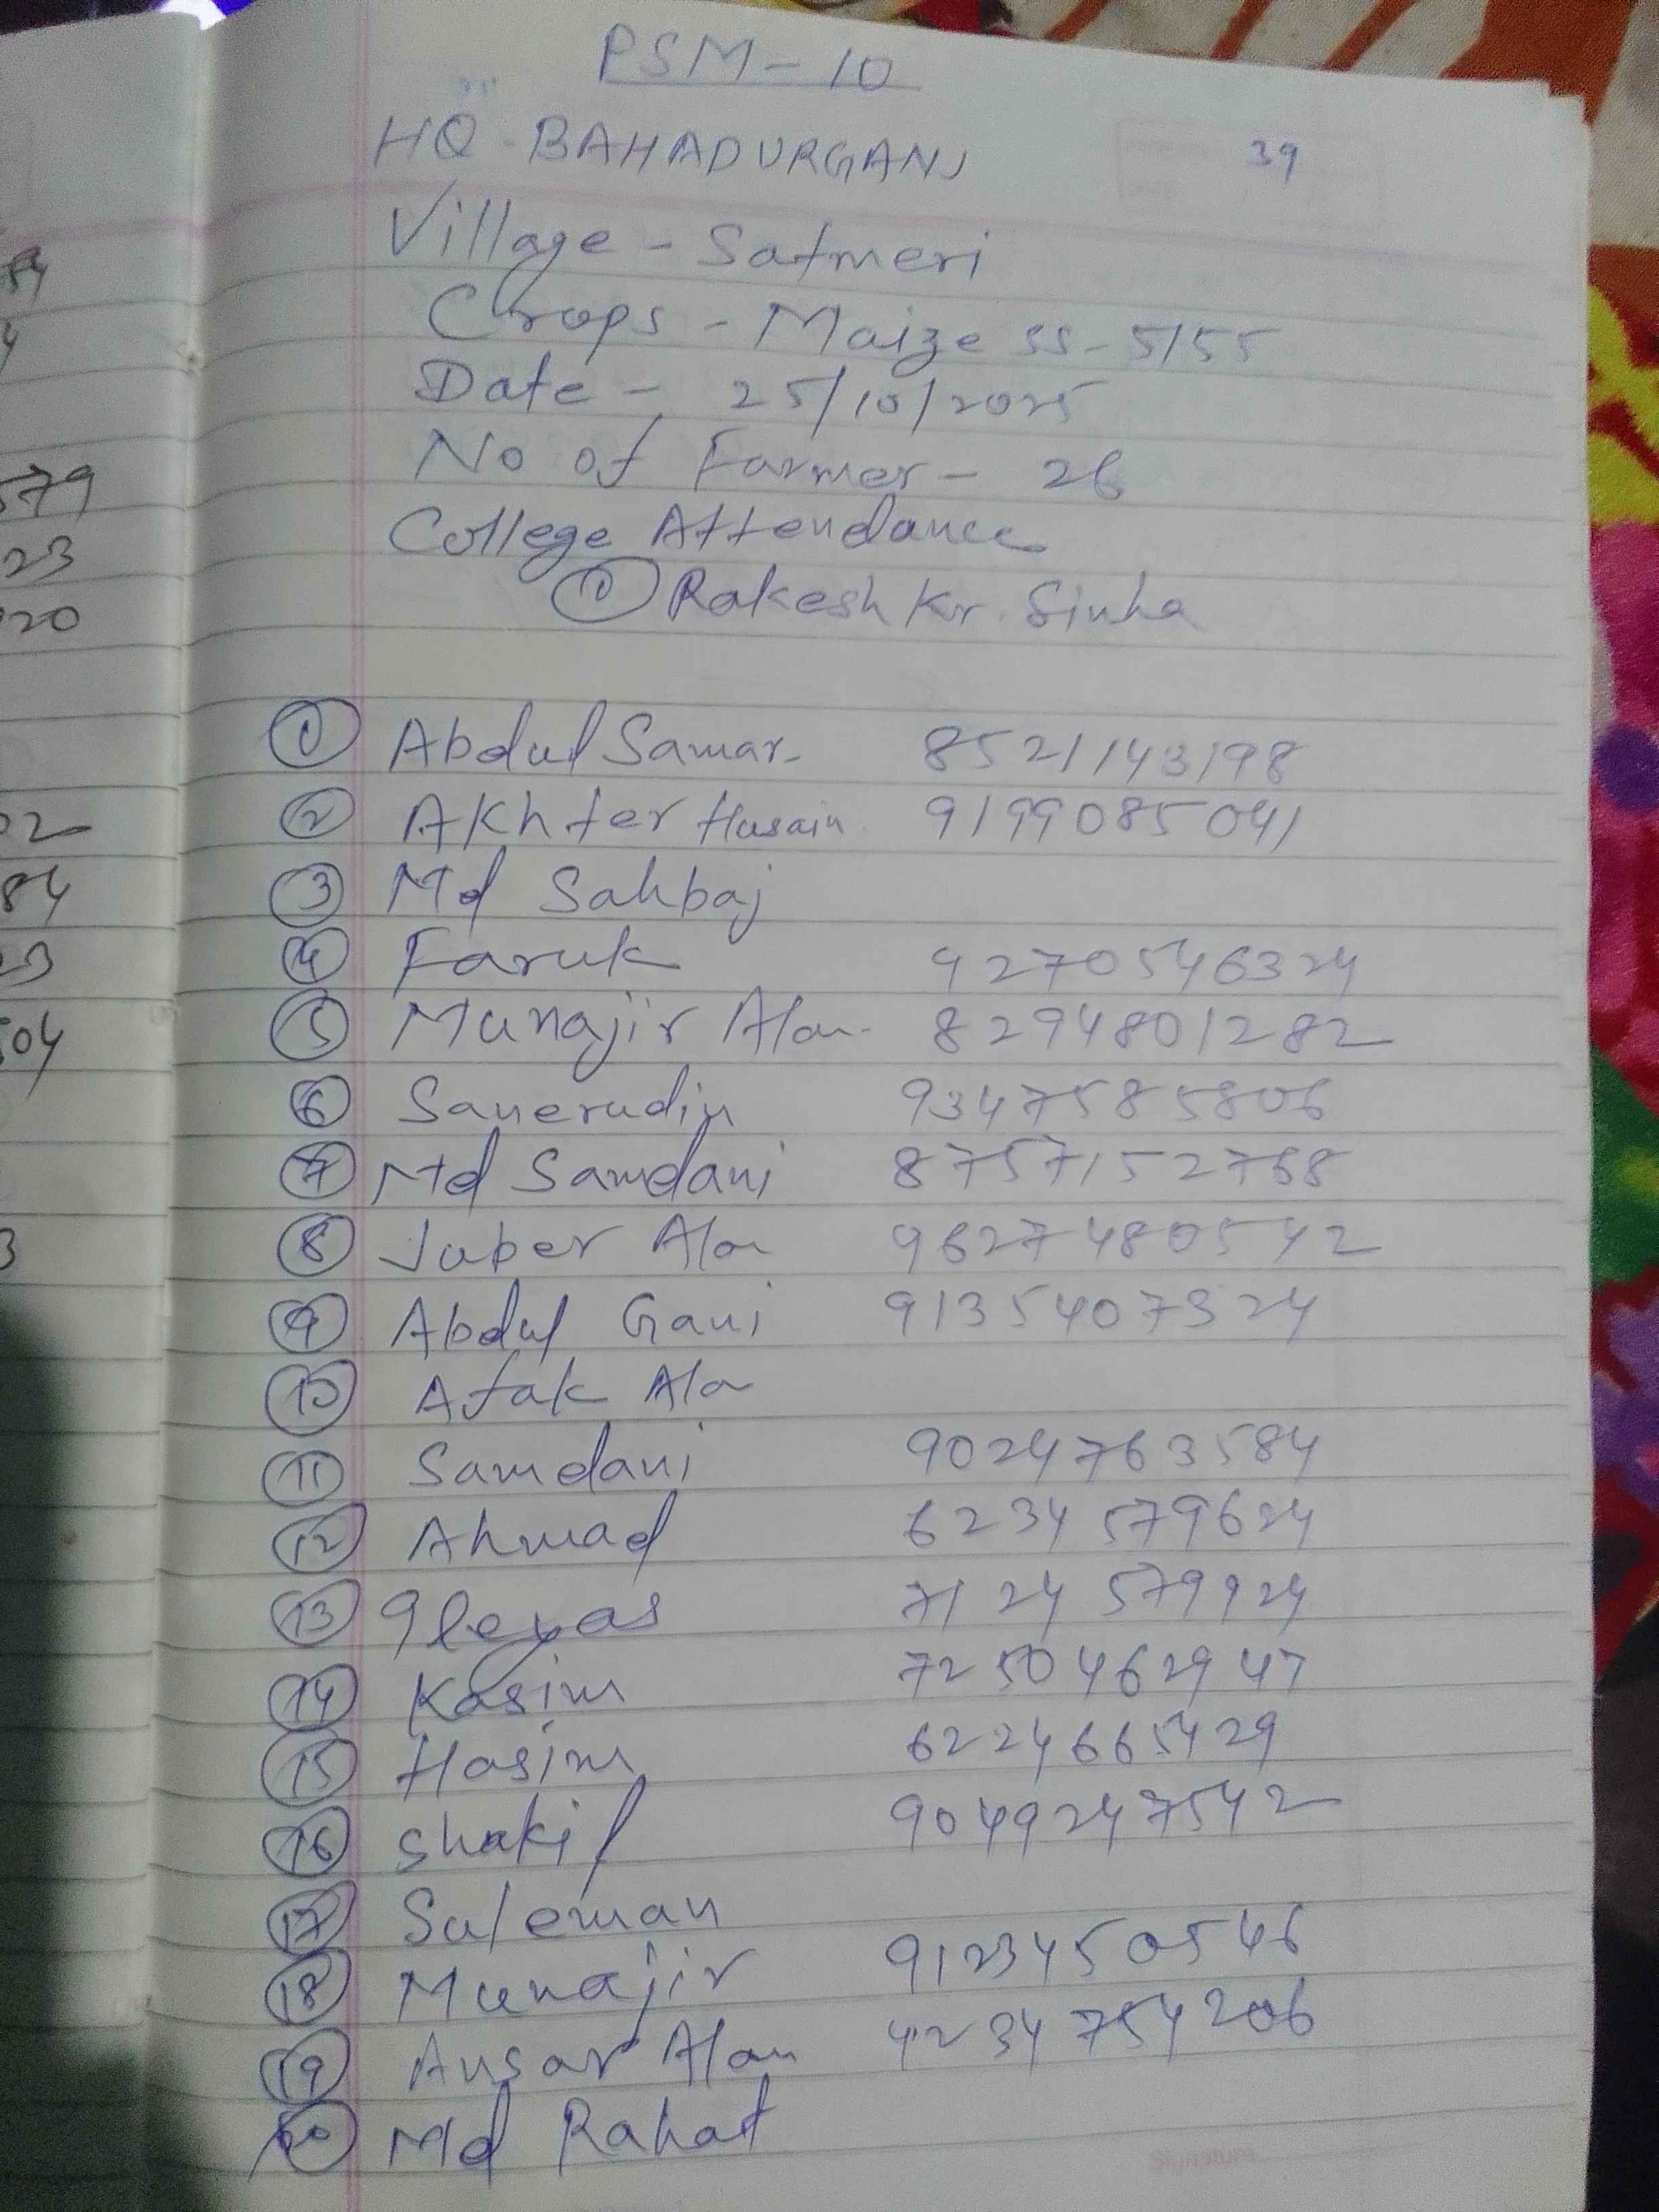 PSM - 10
HQ - BAHADURGANJ
39
Village - Satmeri
Crops - Maize SS - 5155
Date - 25/10/2025
No of Farmer - 26
College Attendance
① Rakesh Kr. Sinha
① Abdul Samar 8521143198
② Akhter Husain 9199085041
③ Md Sahbaj
④ Faruk 9270546324
⑤ Munajir Alam 8294801282
⑥ Sanerudin 9347585806
⑦ Md Samdani 8757152768
⑧ Juber Ala 9627480542
⑨ Abdul Gani 9135407324
⑩ Afak Ala
⑪ Samdani 9024763584
⑫ Ahmad 6234579624
⑬ Ileyas 7124579924
⑭ Kasim 7250462947
⑮ Hasim 6224665429
⑯ Shakil 9049247542
⑰ Suleman
⑱ Munajir 9123450546
⑲ Ansar Alam 4234754206
⑳ Md Rahat